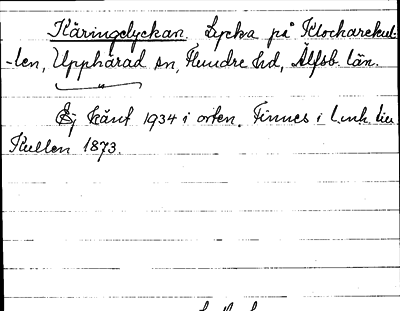 Käringelyckan. Lycka på Klocharekul-
-len, Upphärad sn, Flundre hd, Älfsb. län.
Ej känt 1934 i orten. Finnes i l.
Kullen 1873.